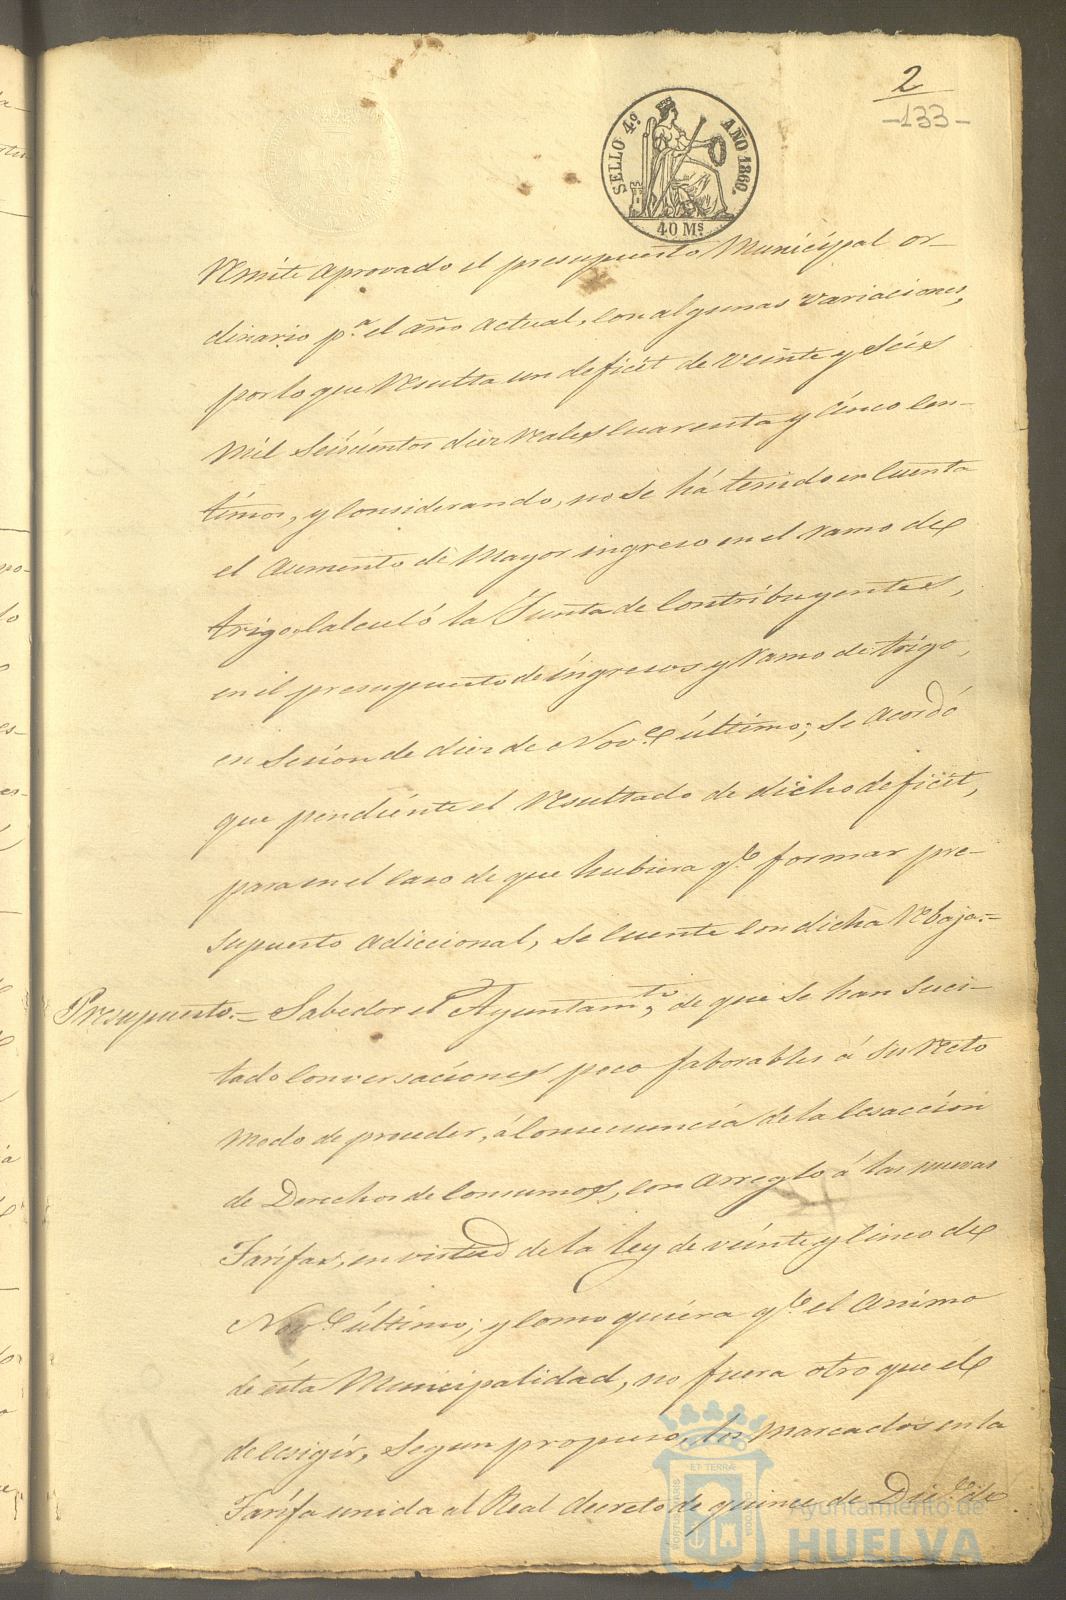 2
-133-
SELLO 4.º AÑO 1860.
40 Ms
Remite aprovado el presupuesto Municipal or-
dinario p.ª el año actual, con algunas variaciones,
por lo que resulta un deficit de veinte y seis
mil seiscientos diez reales cuarenta y cinco cen-
timos, y considerando, no se há tenido en cuenta
el aumento de mayor ingreso en el ramo de
trigo calculó la Junta de Contribuyentes,
en el presupuesto de ingresos y ramo de trigo,
en sesion de diez de Nov.e último; se acordó
que pendiente el resultado de dicho deficit,
para en el caso de que hubiera q.e formar pre-
supuesto adiccional, se cuente con dicha rebaja.=
Presupuesto.= Sabedor el Ayuntam.to, de que se han suci-
tado conversaciones poco faborables á su recto
modo de proceder, á consecuencia de la esaccion
de Derechos de Consumos, con arreglo á las nuevas
Tarifas, en virtud de la ley de veinte y cinco de
Nov.e último; y como quiera q.e el animo
de ésta Municipalidad, no fuera otro que él
de esigir, segun propuso, los marcados en la
Tarifa unida al Real decreto de quince de Dic.e de
ET TERRA
PORTUS MARIS
CUSTODIA
Ayuntamiento de
HUELVA